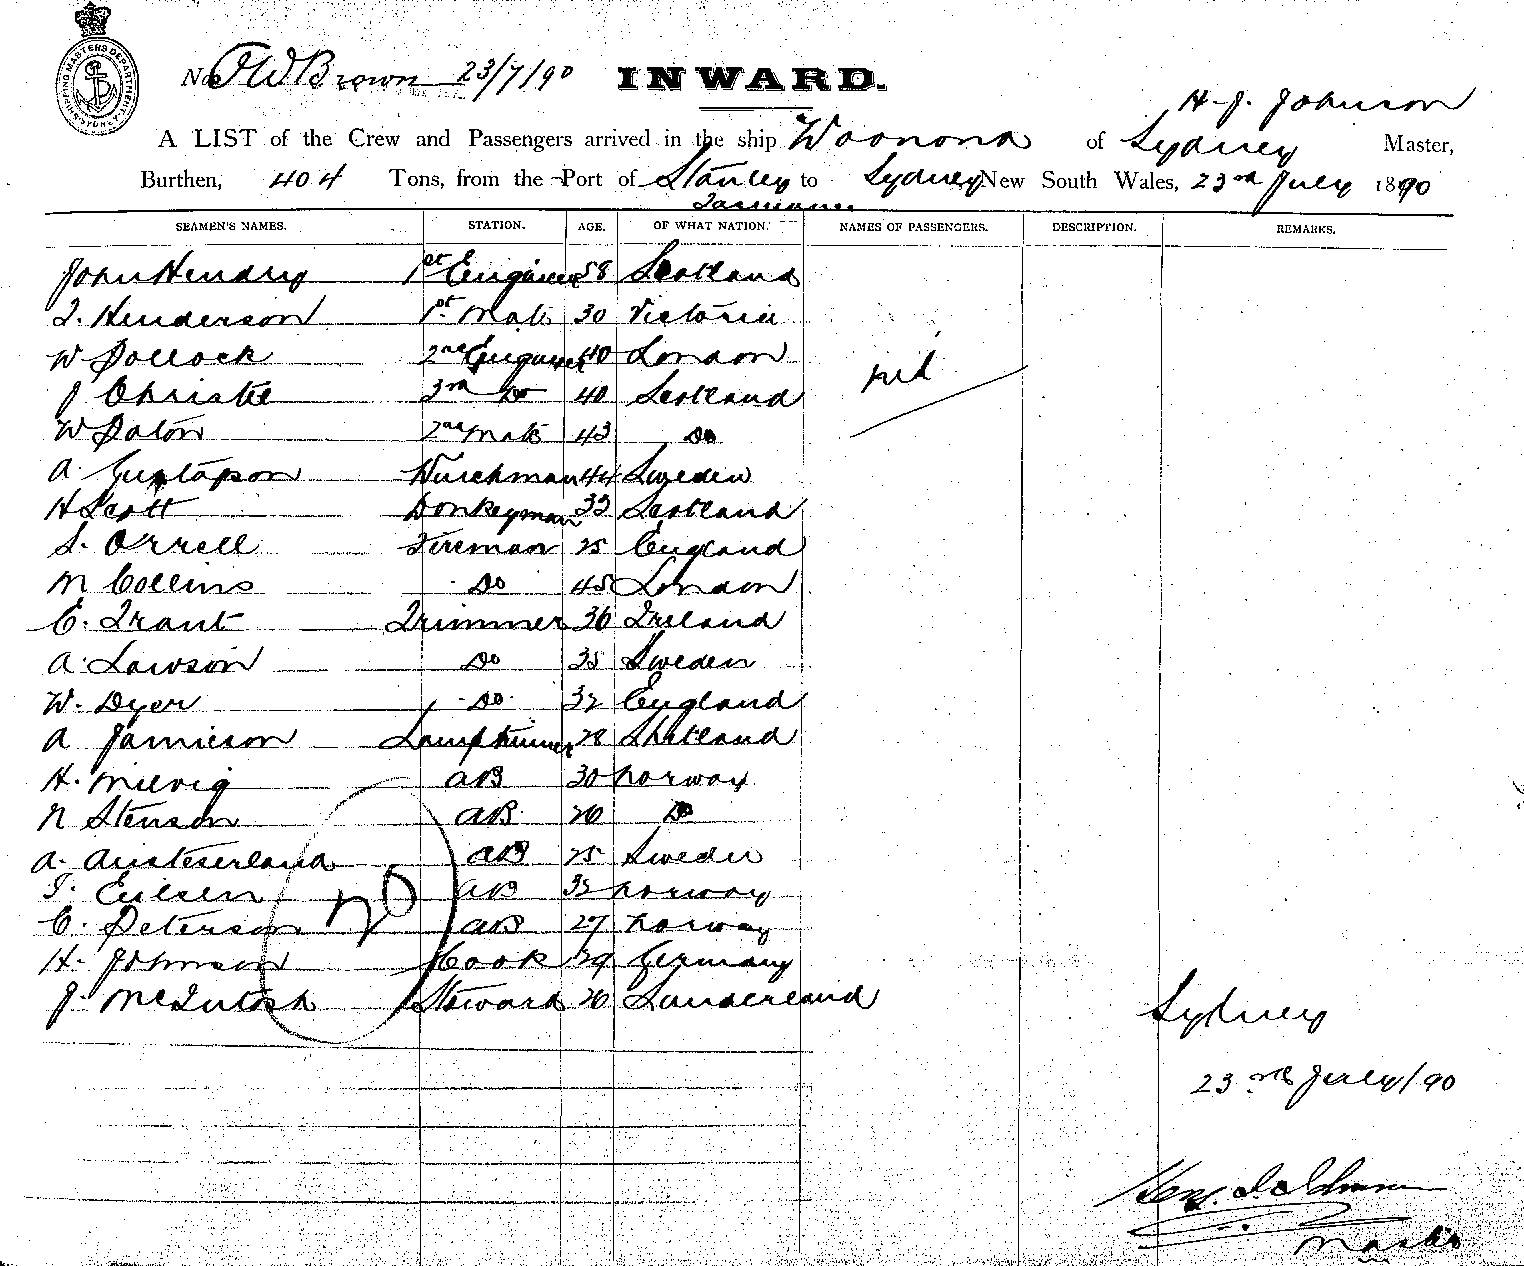 SHIPPING MASTERS DEPARTMENT SYDNEY
No. J W Brown 23/7/90 INWARD.
H. J. Johnson
A LIST of the Crew and Passengers arrived in the ship Woonona of Sydney Master,
Burthen, 404 Tons, from the Port of Stanley to Sydney New South Wales, 23rd July 1890
Tasmania
SEAMEN'S NAMES. STATION. AGE. OF WHAT NATION. NAMES OF PASSENGERS. DESCRIPTION. REMARKS.
John Hendry 1st Engineer 58 Scotland
T. Henderson 1st Mate 30 Victoria
W Pollock 2nd Engineer 40 London
nil
J Christie 3rd Do 40 Scotland
W Paton 2nd Mate 43 Do
A. Gustafson Winchman 44 Sweden
H Scott Donkeyman 33 Scotland
S. Orrell Fireman 25 England
M Collins Do 45 London
E. Trant Trimmer 36 Ireland
A. Lawson Do 35 Sweden
W. Dyer Do 32 England
A Jamieson Lamptrimmer 28 Shetland
H. Milvig AB 30 Norway
N Stenson AB 26 Do
A. Austeserland AB 25 Sweden
T. Eilsen AB 32 Norway
C. Peterson AB 27 Norway
H. Johnson Cook 29 Germany
J. McIntosh Steward 26 Sunderland
Sydney
23rd July/90
Master